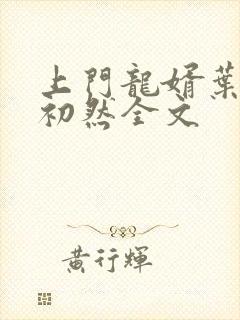 上門龍婿葉
初然全文
黃行輝